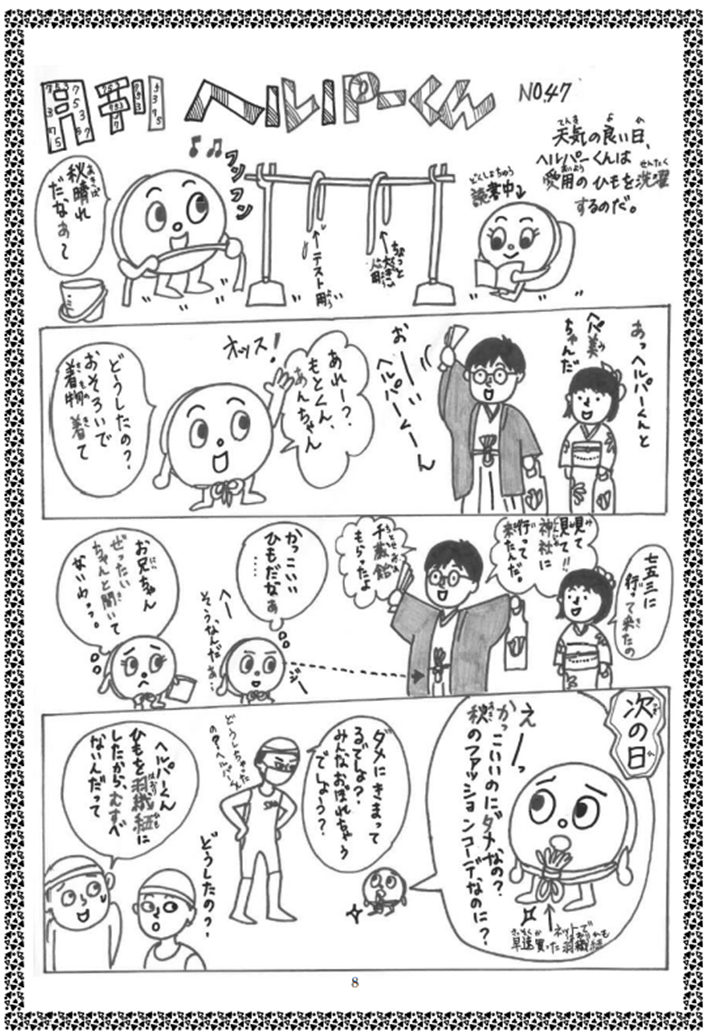 月刊 ヘルパーくん NO.47
天気の良い日、
ヘルパーくんは
愛用のひもを洗濯
するのだ。
秋晴れ
だなぁ〜
フンフン
←テスト用
読書中
あっヘルパーくんと
ヘパ美
ちゃんだ
お〜い
ヘルパーくーん
あれー?
もとくん、
あんちゃん
オッス!
どうしたの?
おそろいで
着物着て
七五三に
行って来たの
見て!!
神社に
行って
来たんだ。
千歳飴
もらったよ
かっこいい
ひもだなぁ
へー
そうなんだぁ…
ジー
お兄ちゃん
ぜったい
ちゃんと聞いて
ないわ・・・
次の日
えーっ
かっこいいのにダメなの?
秋のファッションコーデなのに?
ネットで
早速買った羽織紐
ダメにきまって
るでしょ?
みんなおぼれちゃう
でしょう?
どうしたの?
ヘルパーくん
ひもを羽織紐に
したから、むすべ
ないんだって
8